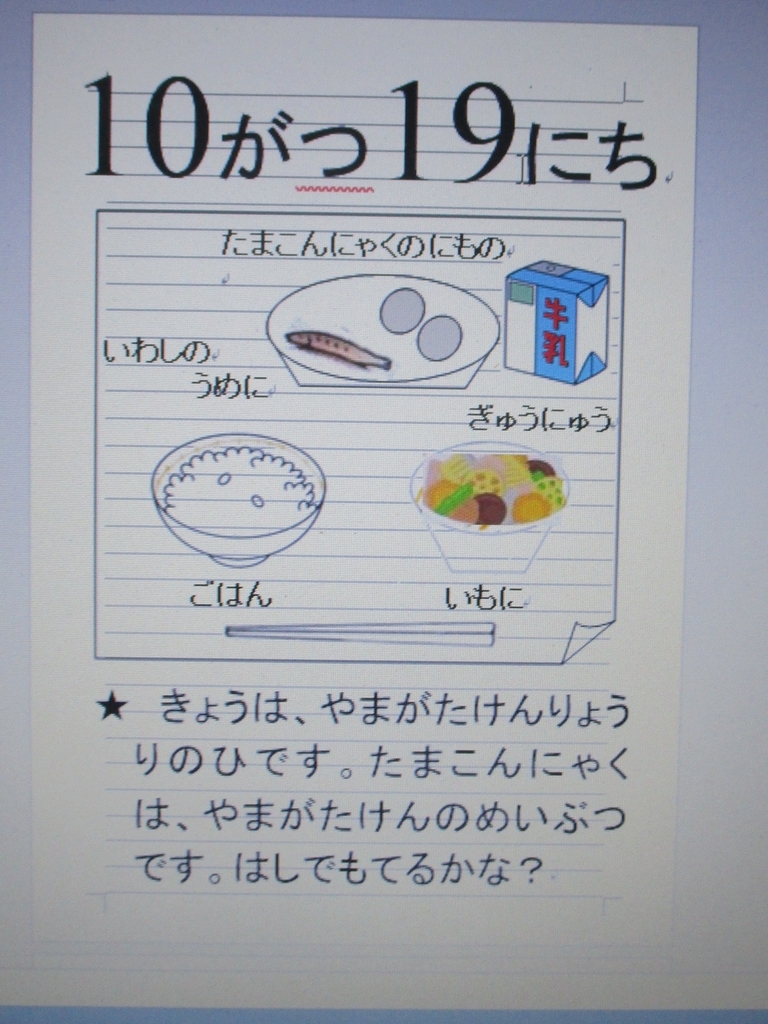 10がつ19にち
たまこんにゃくのにもの
牛乳
いわしの
うめに
ぎゅうにゅう
ごはん
いもに
★ きょうは、やまがたけんりょう
りのひです。たまこんにゃく
は、やまがたけんのめいぶつ
です。はしでもてるかな？